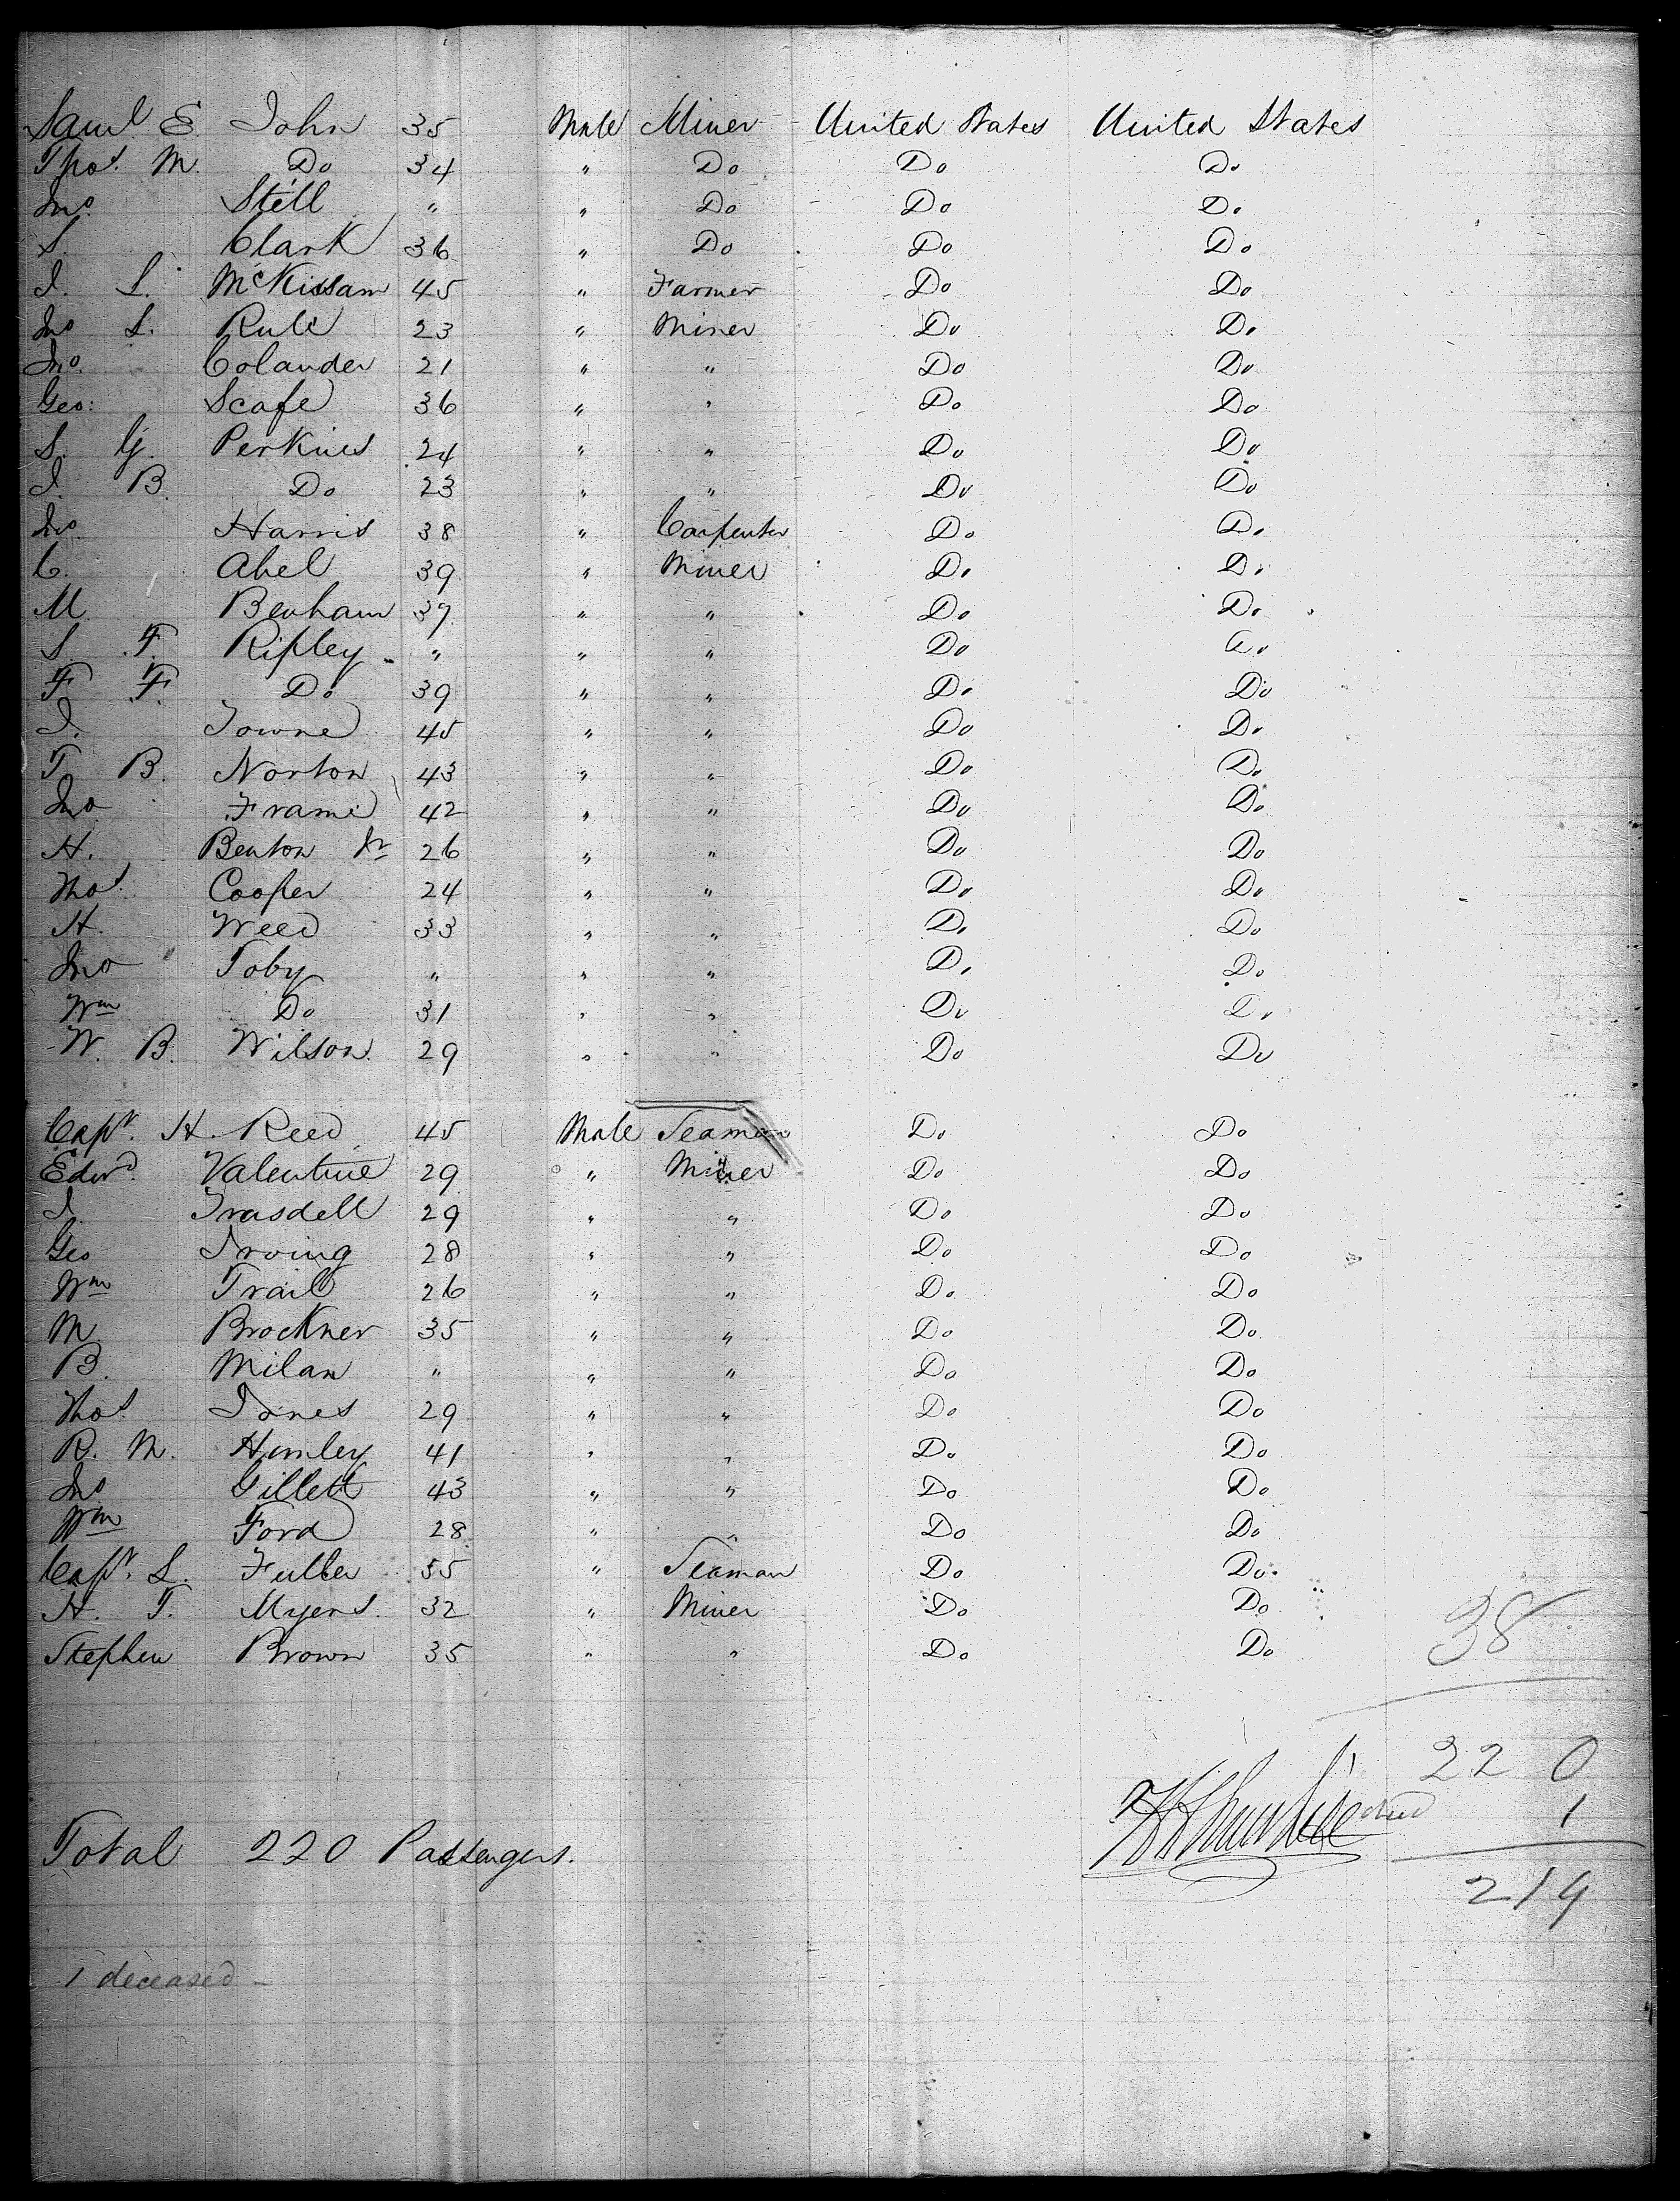 Saml E. John 35 Male Miner United States United States
Thos. M. Do 34 " Do Do Do
Jno. Still " " Do Do Do
S. Clark 36 " Do Do Do
J. L. McKissam 45 " Farmer Do Do
Jno L. Rule 23 " Miner Do Do
Jno. Colander 21 " " Do Do
Geo: Scafe 36 " " Do Do
S. G. Perkins 24 " " Do Do
J. B. Do 23 " " Do Do
Jno. Harris 38 " Carpenter Do Do
C. Abel 39 " Miner Do Do
M. Benham 37 " " Do Do
S. F. Ripley " " " Do Do
F. F. Do 39 " " Do Do
J. Towne 45 " " Do Do
T. B. Norton 43 " " Do Do
Jno Frame 42 " " Do Do
H. Benton Jr 26 " " Do Do
Thos. Cooper 24 " " Do Do
H. Weed 33 " " Do Do
Jno Toby " " " Do Do
Wm Do 31 " " Do Do
W. B. Wilson 29 " " Do Do
Capt. H. Reed 45 Male Seaman Do Do
Edwd. Valentine 29 " Miner Do Do
J. Trasdell 29 " " Do Do
Geo Irving 28 " " Do Do
Wm Trail 26 " " Do Do
M Brockner 35 " " Do Do
B. Milan " " " Do Do
Thos. Jones 29 " " Do Do
R. M. Humley 41 " " Do Do
Jno Gillett 43 " " Do Do
Wm Ford 28 " " Do Do
Capt. L. Fuller 35 " Seaman Do Do
H. T. Myers 32 " Miner Do Do
Stephen Brown 35 " " Do Do
38
220
died 1
Total 220 Passengers.
219
1 deceased -